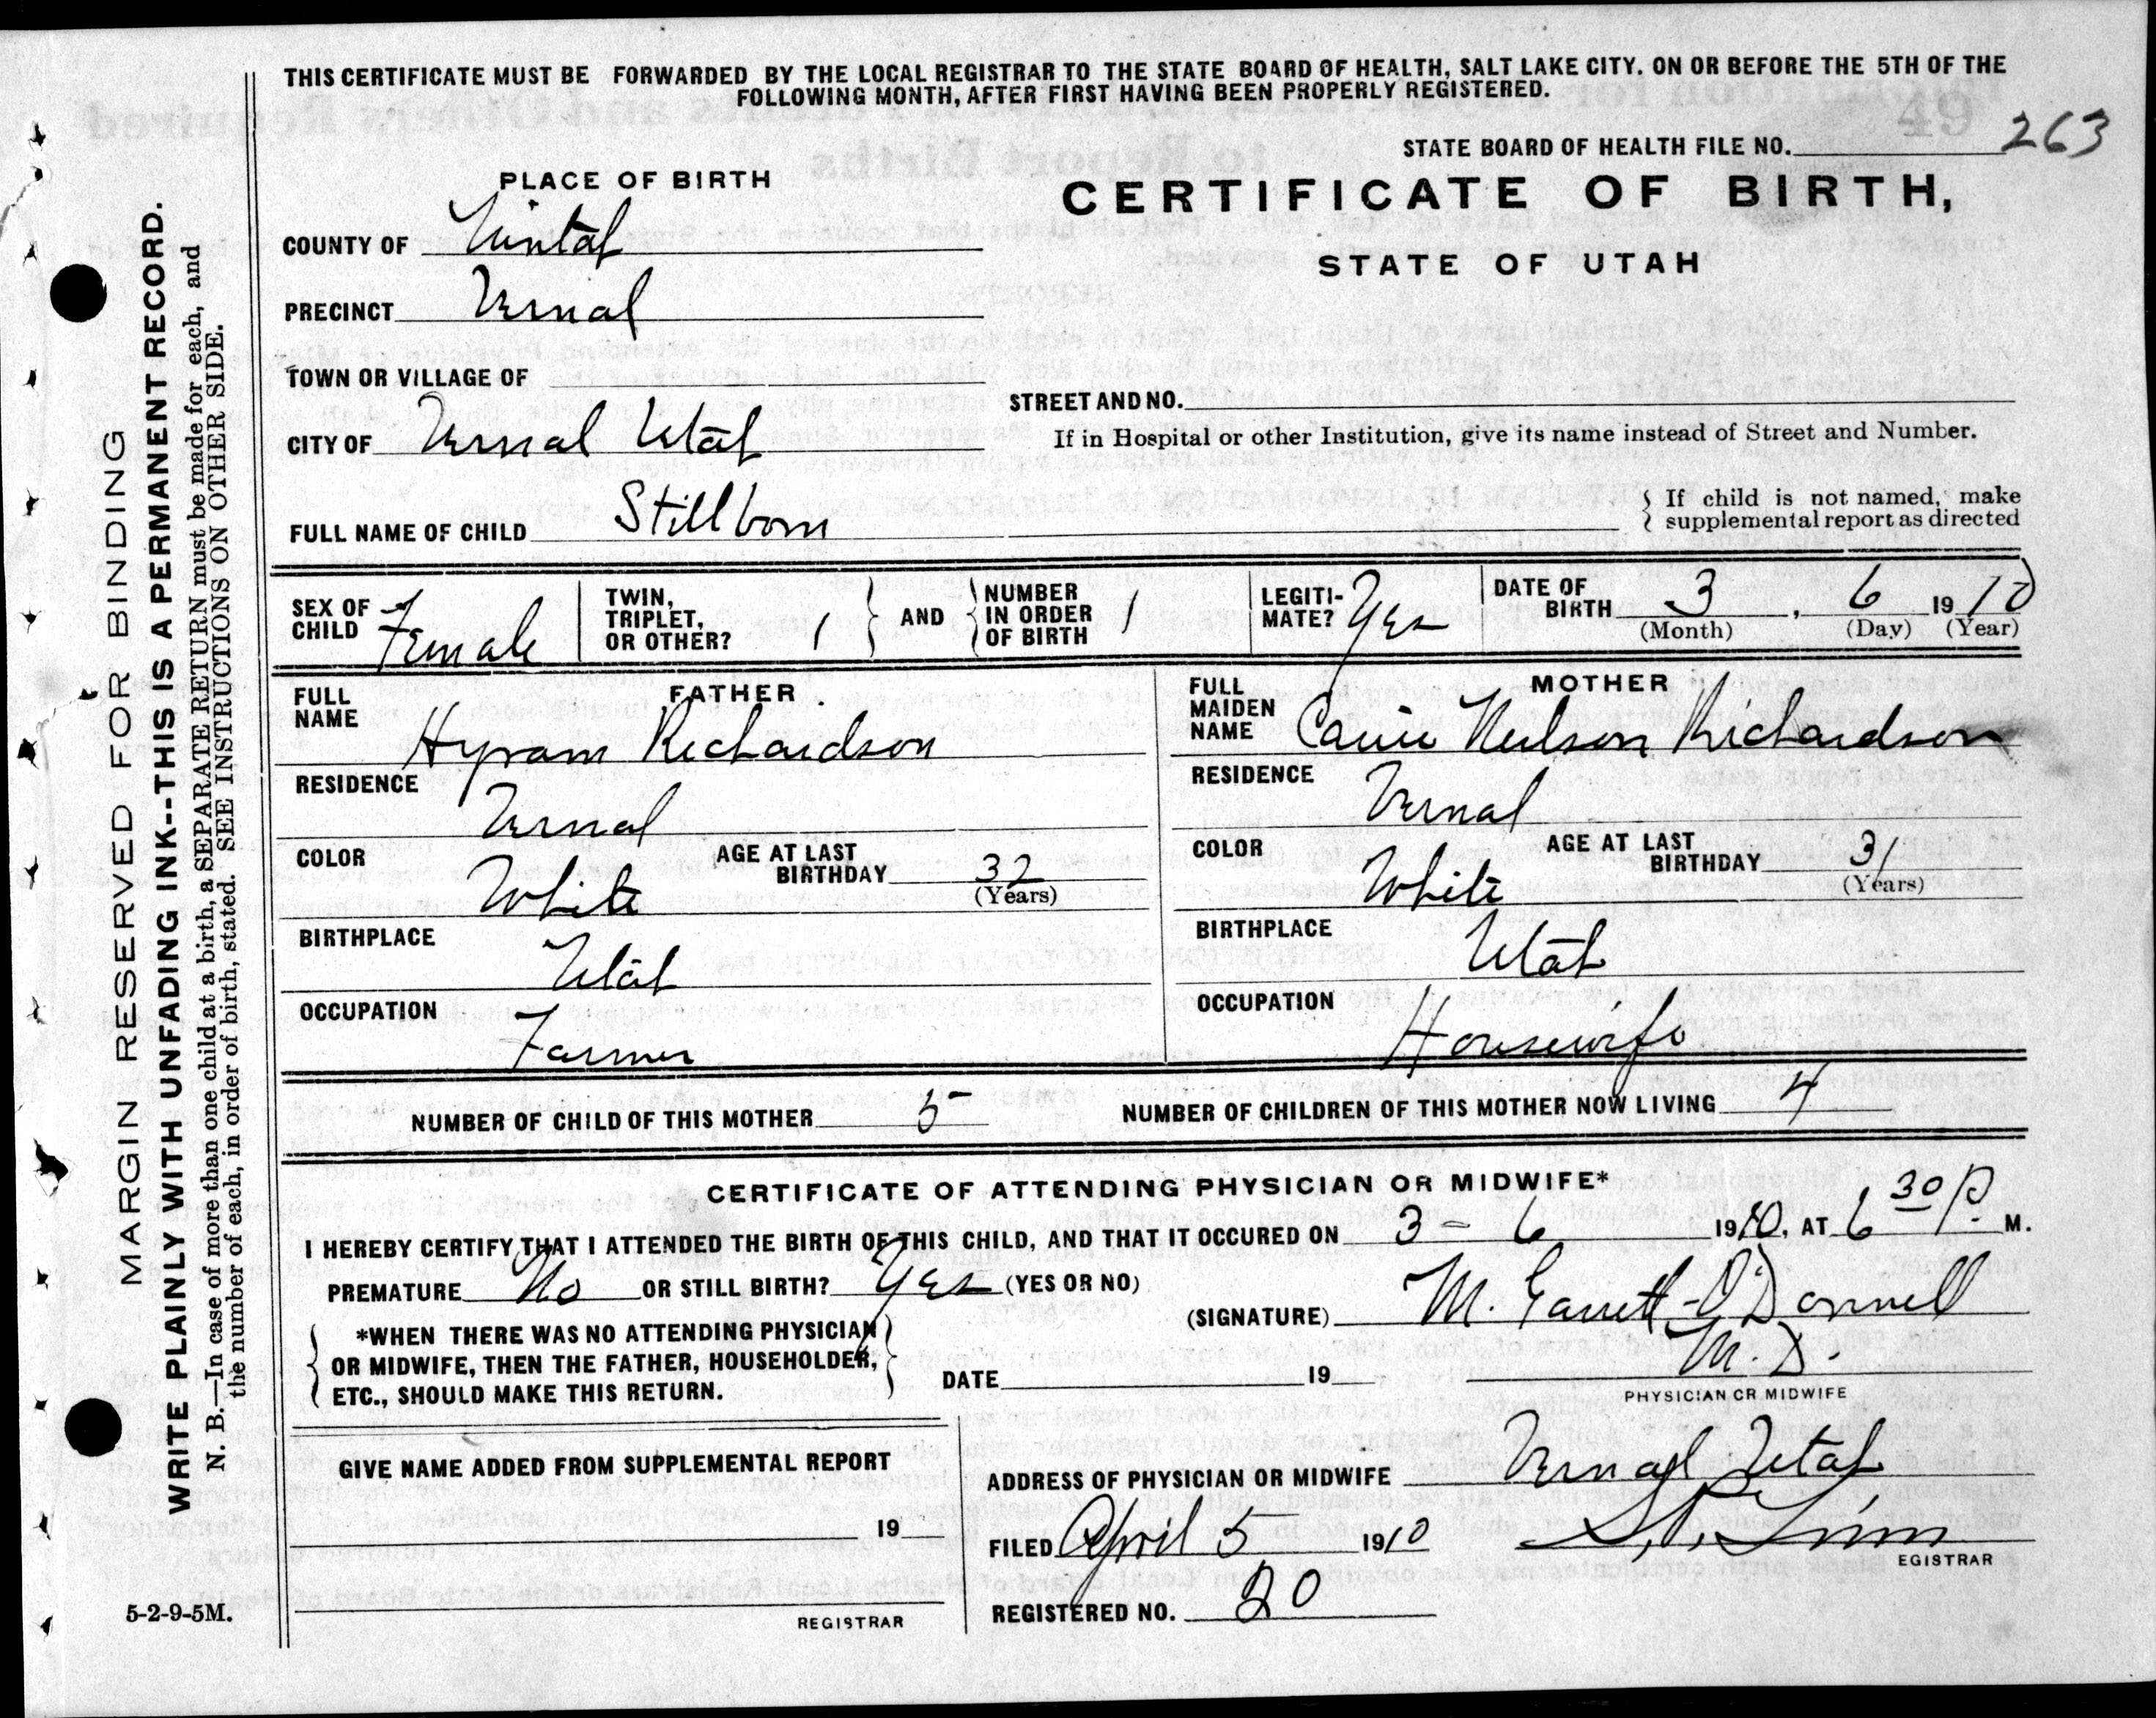 THIS CERTIFICATE MUST BE FORWARDED BY THE LOCAL REGISTRAR TO THE STATE BOARD OF HEALTH, SALT LAKE CITY. ON OR BEFORE THE 5TH OF THE
FOLLOWING MONTH, AFTER FIRST HAVING BEEN PROPERLY REGISTERED.
49
STATE BOARD OF HEALTH FILE NO. 263
PLACE OF BIRTH
CERTIFICATE OF BIRTH,
STATE OF UTAH
COUNTY OF Uintah
PRECINCT Vernal
TOWN OR VILLAGE OF
STREET AND NO.
CITY OF Vernal Utah
If in Hospital or other Institution, give its name instead of Street and Number.
FULL NAME OF CHILD Stillborn
If child is not named, make
supplemental report as directed
SEX OF CHILD Female
TWIN, TRIPLET, OR OTHER? 1
AND
NUMBER IN ORDER OF BIRTH 1
LEGITI-MATE? Yes
DATE OF BIRTH 3, 6 1910
(Month) (Day) (Year)
FATHER
FULL NAME Hyram Richardson
RESIDENCE Vernal
COLOR White
AGE AT LAST BIRTHDAY 32
(Years)
BIRTHPLACE Utah
OCCUPATION Farmer
MOTHER
FULL MAIDEN NAME Carrie Neilson Richardson
RESIDENCE Vernal
COLOR White
AGE AT LAST BIRTHDAY 31
(Years)
BIRTHPLACE Utah
OCCUPATION Housewife
NUMBER OF CHILD OF THIS MOTHER 5
NUMBER OF CHILDREN OF THIS MOTHER NOW LIVING 4
CERTIFICATE OF ATTENDING PHYSICIAN OR MIDWIFE*
I HEREBY CERTIFY THAT I ATTENDED THE BIRTH OF THIS CHILD, AND THAT IT OCCURED ON 3 - 6 1910, AT 6 30 P. M.
PREMATURE No OR STILL BIRTH? Yes (YES OR NO)
(SIGNATURE) M. Garrett-O'Donnell
M.D.
PHYSICIAN OR MIDWIFE
*WHEN THERE WAS NO ATTENDING PHYSICIAN
OR MIDWIFE, THEN THE FATHER, HOUSEHOLDER,
ETC., SHOULD MAKE THIS RETURN.
DATE 19
GIVE NAME ADDED FROM SUPPLEMENTAL REPORT
19
REGISTRAR
ADDRESS OF PHYSICIAN OR MIDWIFE Vernal Utah
FILED April 5 1910
EGISTRAR
REGISTERED NO. 20
MARGIN RESERVED FOR BINDING
WRITE PLAINLY WITH UNFADING INK--THIS IS A PERMANENT RECORD.
N. B.—In case of more than one child at a birth, a SEPARATE RETURN must be made for each, and
the number of each, in order of birth, stated. SEE INSTRUCTIONS ON OTHER SIDE.
5-2-9-5M.